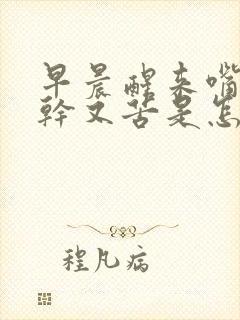 早晨醒来嘴
幹又苦是怎
程凡病